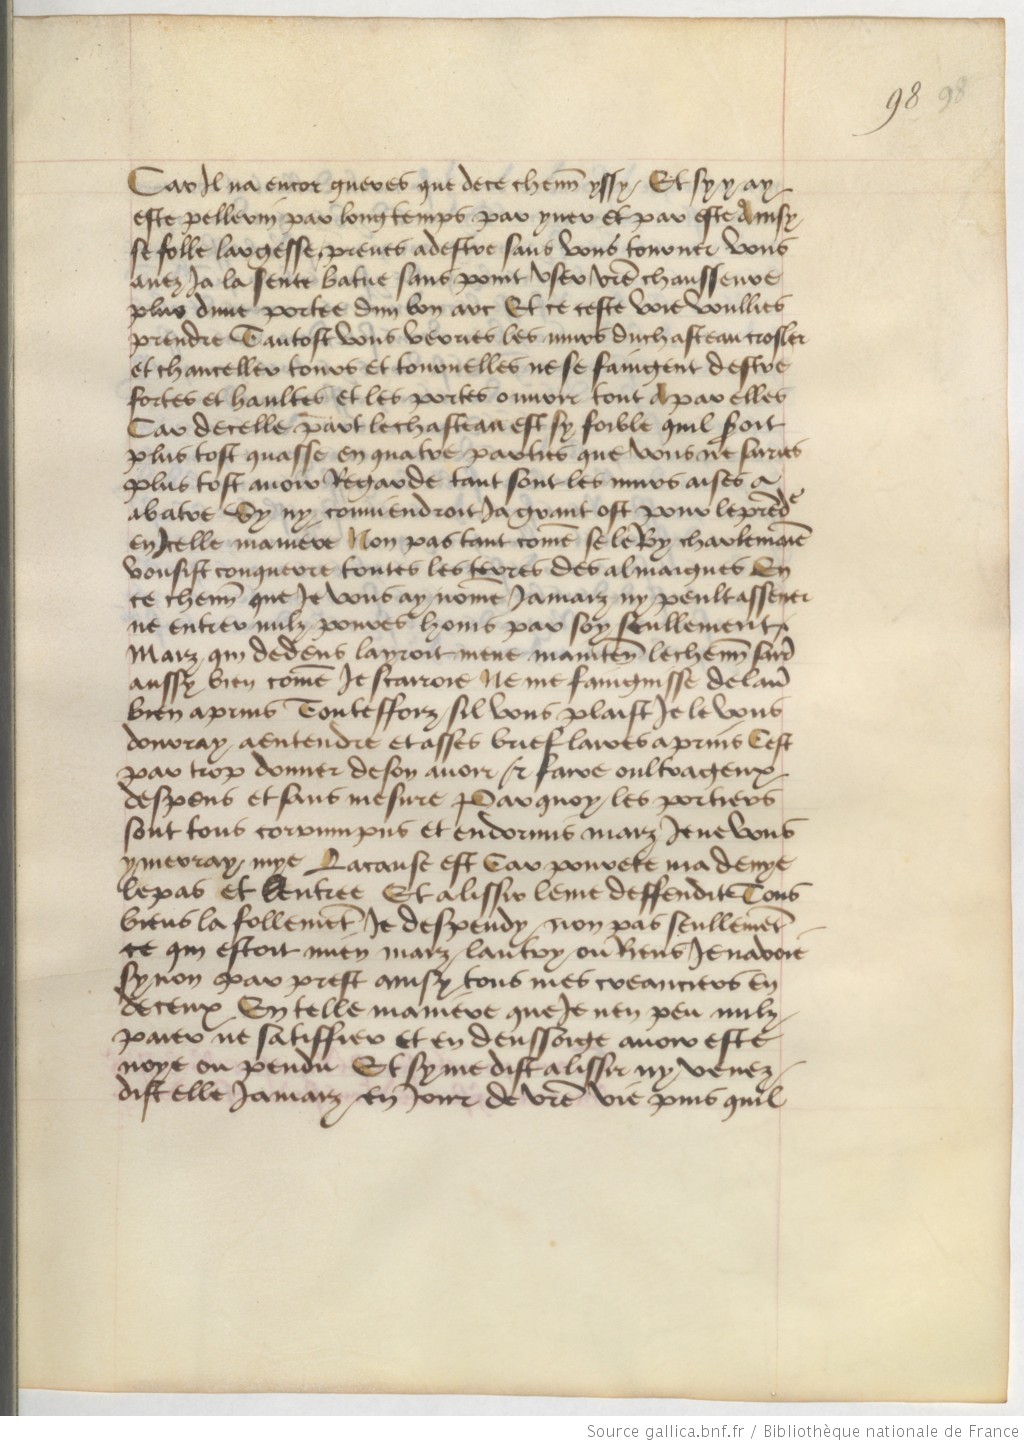 98 98
Car Il na encor gueres que de ce chemī yssy Et sy y ay
este pellerin par long temps par yuer et par este Ainsy
se folle largesse prenes a destre sans vous tourner vous
auez Ja la sente batue sans point vser vrē chausseure
plus dune portee dun bon arc Et ce ceste voie voullies
prendre Tantost vous verries les murs du chasteau crosler
et chanceller tours et tournelles ne se faingent destre
fortes et haultes et les portes ouurir tout A par elles
Car de celle part le chasteau est sy foible quil soit
plus tost quasse en quatre parties que vous ne suries
plus tost auoir Regarde tant sont les murs aises a
abatre Sy ny conuiendroit Ja grant ost pour le prēdē
en Icelle maniere Non pas tant comē se le Roy charlemaīe
vousist conquerre toutes les terres des almaignes En
ce chemī que Je vous ay nomē Jamarz ny peult assener
ne entrer nulz poures homs par soy seullement
Marz qui dedens layroit mene maintenī le chemī
aussy bien comē Je scaroie Ne me faingnisse de
bien aprins Toutefforz sil vous plaist Je le vous
donray a entendre et asses brief lares aprins Cest
par trop donner de son auoir et faire oultrageux
despens et sans mesure Par quoy les portiers
sont tous corrumpus et endormis marz Je ne vous
y menray mye La cause est Car pourete ma denye
le pas et lentree Et a lissir leme deffendit Tous
biens la follemēt Je despendy non pas seullemēt
ce qui estoit mien marz lautry ou Riens Je nauoie
sy non par prest Ainsy tous mes creanciers en
deceux En telle maniere que Je nen peu nulz
paier ne satiffier et en deussoige auoir este
noye ou pendu Et sy me dist a lissir ny venez
dist elle Jamarz en Jour de vrē vie puis quil
Source gallica.bnf.fr / Bibliothèque nationale de France